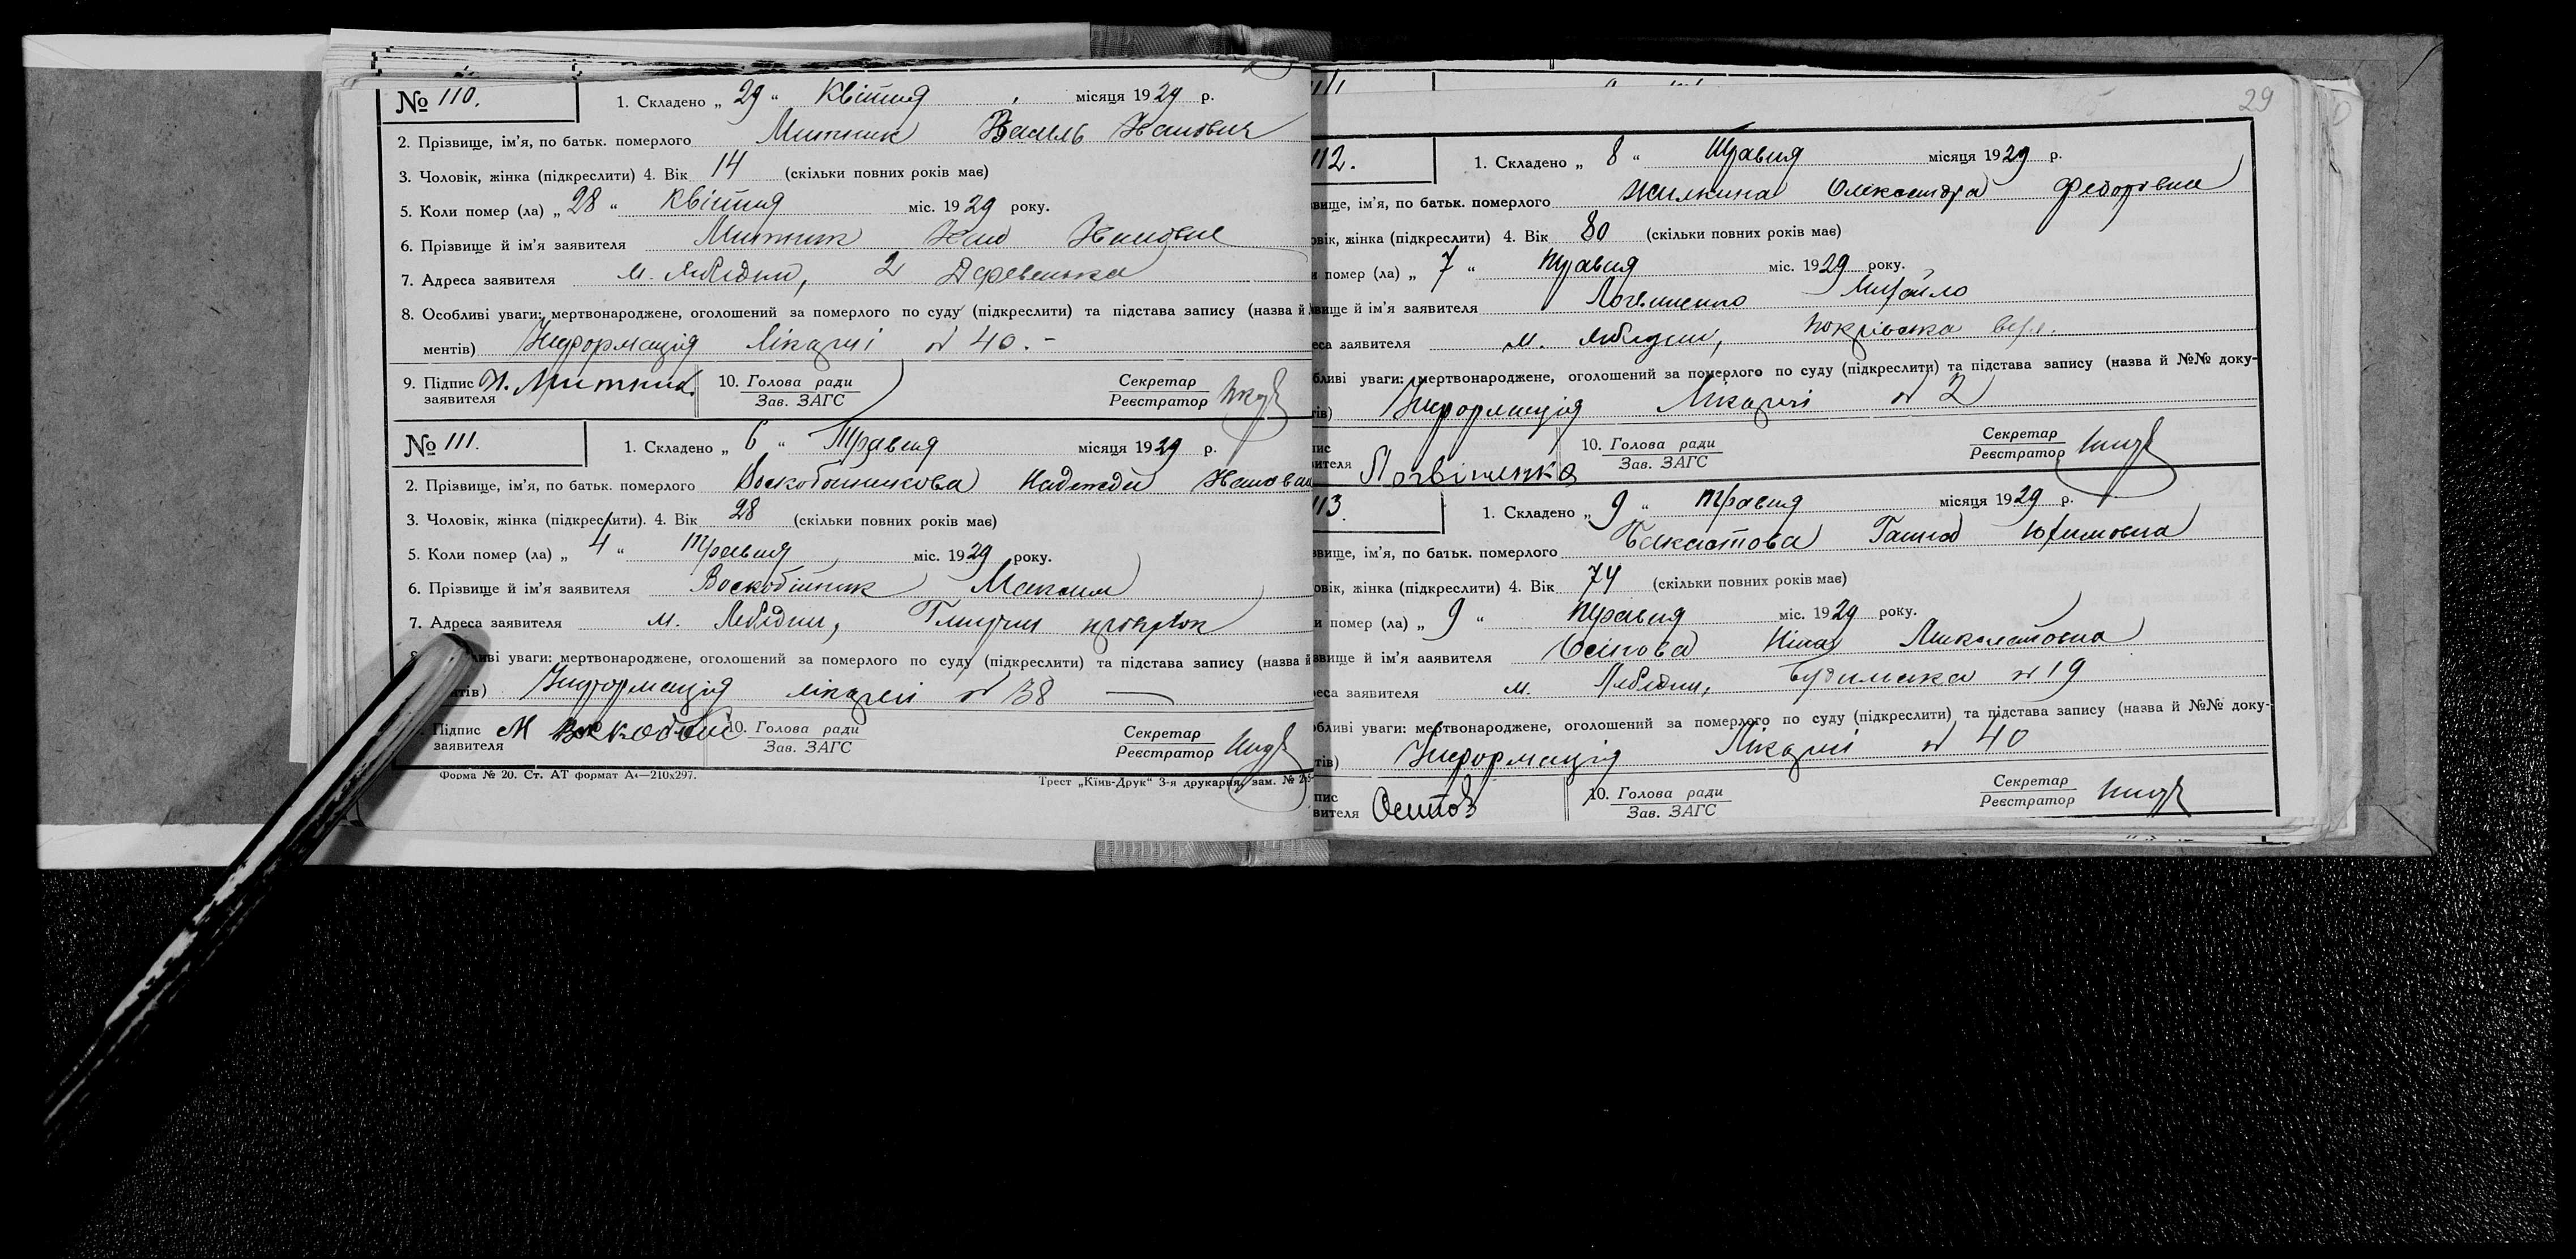 № 110. 1. Складено „ 29 “ Квітня місяця 1929 р.
2. Прізвище, ім'я, по батьк. померлого Митник Василь Іванович
3. Чоловік, жінка (підкреслити) 4. Вік 14 (скільки повних років має)
5. Коли помер (ла) „ 28 “ Квітня міс. 1929 року.
6. Прізвище й ім'я заявителя Митник Іван Іванович
7. Адреса заявителя м. Лебедин, 2 Деревенька
8. Особливі уваги: мертвонароджене, оголошений за померлого по суду (підкреслити) та підстава запису (назва й
ментів) Інформація лікарні № 40. -
9. Підпис заявителя И. Митник 10. Голова ради Зав. ЗАГС Секретар Реєстратор
№ 111. 1. Складено „ 6 “ Травня місяця 1929 р.
2. Прізвище, ім'я, по батьк. померлого Воскобойникова Надежда
3. Чоловік, жінка (підкреслити). 4. Вік 28 (скільки повних років має)
5. Коли помер (ла) „ 4 “ Травня міс. 1929 року.
6. Прізвище й ім'я заявителя Воскобійник Максим
7. Адреса заявителя м. Лебедин,
уваги: мертвонароджене, оголошений за померлого по суду (підкреслити) та підстава запису (назва й
Інформація лікарні № 38 —
Підпис заявителя М 10. Голова ради Зав. ЗАГС Секретар Реєстратор
Форма № 20. Ст. АТ формат А4—210х297. Трест „Київ-Друк“ 3-я друкарня, зам. №
29
112. 1. Складено „ 8 “ Травня місяця 1929 р.
вище, ім'я, по батьк. померлого Жилкина Олександра Федорівна
овік, жінка (підкреслити) 4. Вік 80 (скільки повних років має)
и помер (ла) „ 7 “ Травня міс. 1929 року.
звище й ім'я заявителя Логвиненко Михайло
еса заявителя м. Лебедин, Покрівська вул.
бливі уваги: мертвонароджене, оголошений за померлого по суду (підкреслити) та підстава запису (назва й №№ доку-
тів) Інформація Лікарні № 2
пис вителя Логвіненко 10. Голова ради Зав. ЗАГС Секретар Реєстратор
113. 1. Складено „ 9 “ Травня місяця 1929 р.
звище, ім'я, по батьк. померлого Ганна Юхимовна
овік, жінка (підкреслити) 4. Вік 74 (скільки повних років має)
и помер (ла) „ 9 “ Травня міс. 1929 року.
звище й ім'я ааявителя Осіпова Ніна
еса заявителя м. Лебедин, № 19
обливі уваги: мертвонароджене, оголошений за померлого по суду (підкреслити) та підстава запису (назва й №№ доку-
тів) Інформація Лікарні № 40
пис вителя 10. Голова ради Зав. ЗАГС Секретар Реєстратор